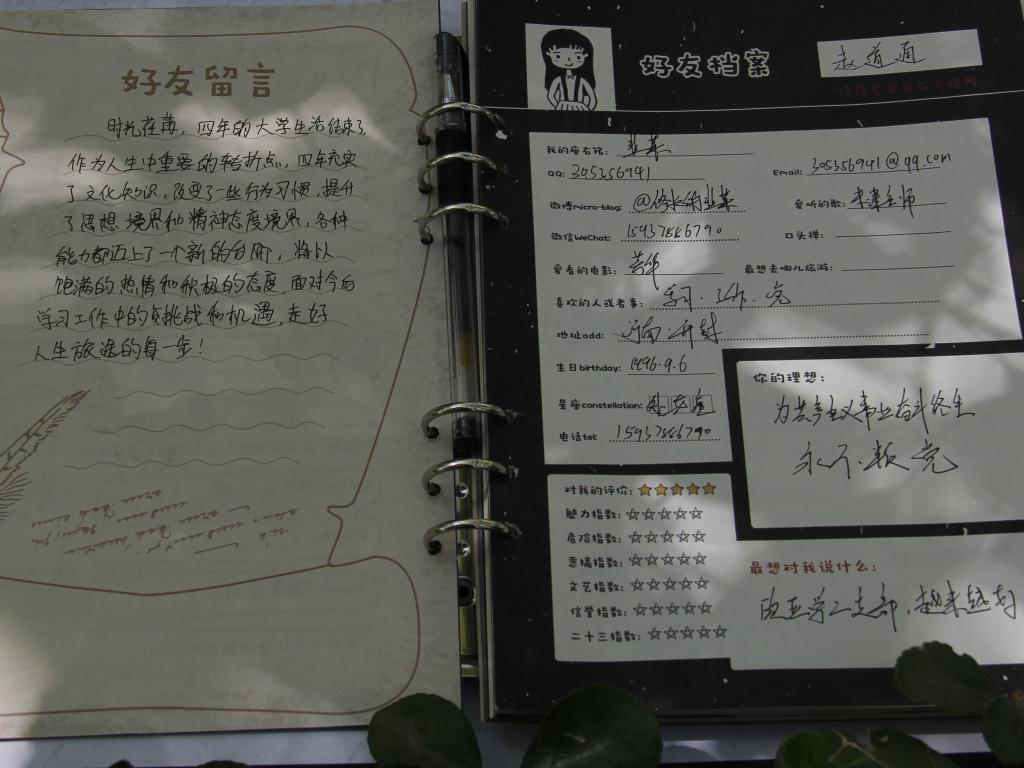 好友留言
时光荏苒，四年的大学生活结束了，
作为人生中重要的转折点，四年充实
了文化知识，改变了一些行为习惯，提升
了思想境界和精神态度境界，各种
能力都迈上了一个新的台阶，将以
饱满的热情和积极的态度，面对今后
学习工作中的挑战和机遇，走好
人生旅途的每一步！
好友档案
赵道通
我的座右铭：
QQ: 305356941
Email: 305356941@qq.com
微博micro-blog:
爱听的歌：
微信WeChat: 15937886790
口头禅：
爱看的电影：芳华
最想去哪儿旅游：
喜欢的人或者事：学习·工作·
地址add: 河南·开封
生日birthday: 1996.9.6
星座constellation: 处女座
电话tel: 15937886790
你的理想：
为共产主义事业奋斗终生
永不
对我的评价：
魅力指数：
危险指数：
恶搞指数：
文艺指数：
信誉指数：
二十三指数：
最想对我说什么：
支部，越来越好